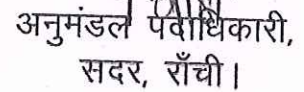 अनुमंडल पदाधिकारी,
सदर, राँची।